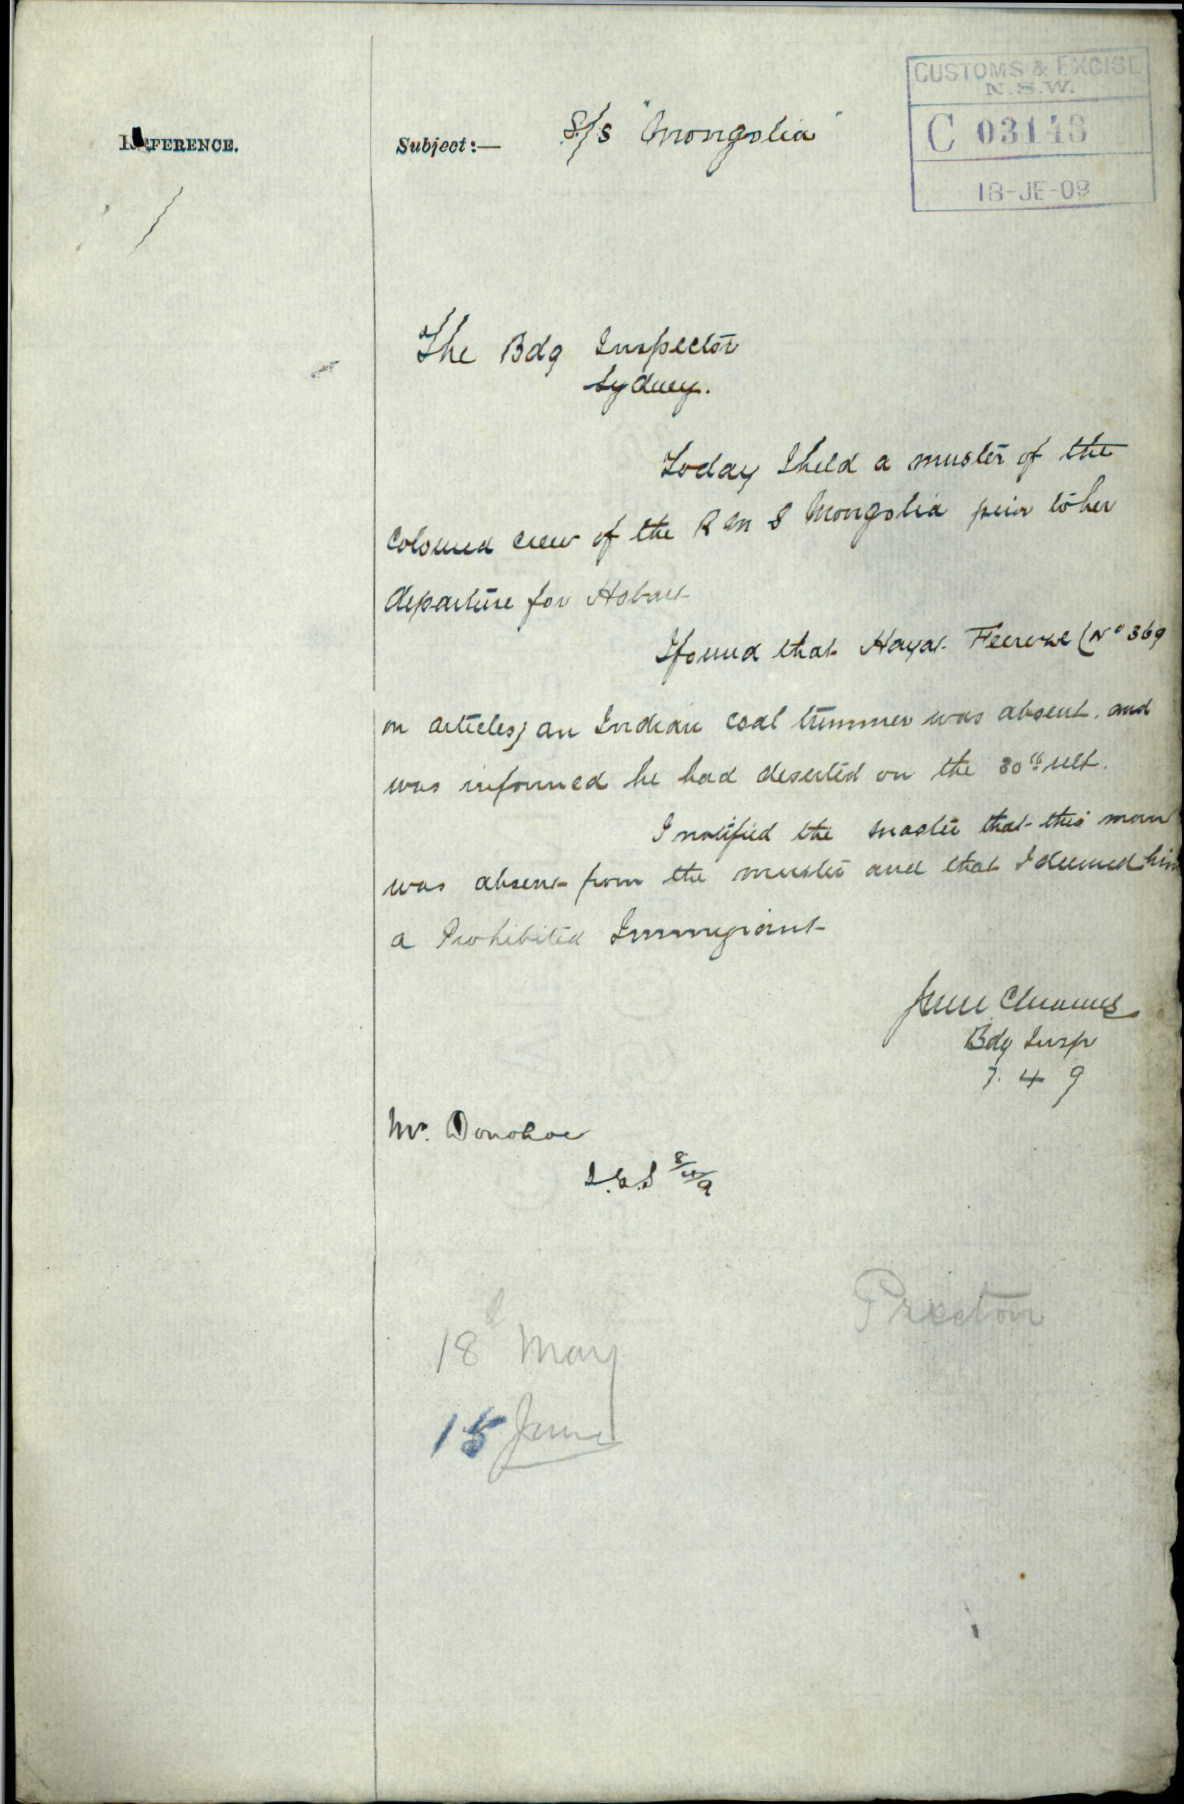 CUSTOMS & EXCISE
N.S.W.
C 03143
18-JE-09
REFERENCE.
Subject:— S/s "Mongolia"
The Bdg Inspector
Sydney.
Today I held a muster of the
coloured crew of the R M S Mongolia prior to her
departure for Hobart
I found that Hayat Feeroze (No 369
on articles) an Indian coal trimmer was absent. and
was informed he had deserted on the 30th ult.
I notified the master that this man
was absent from the muster and that I deemed him
a Prohibited Immigrant
Bdg Insp
7. 4 9
Mr. Donohoe
8/4/9
18 May
15 June
Preston